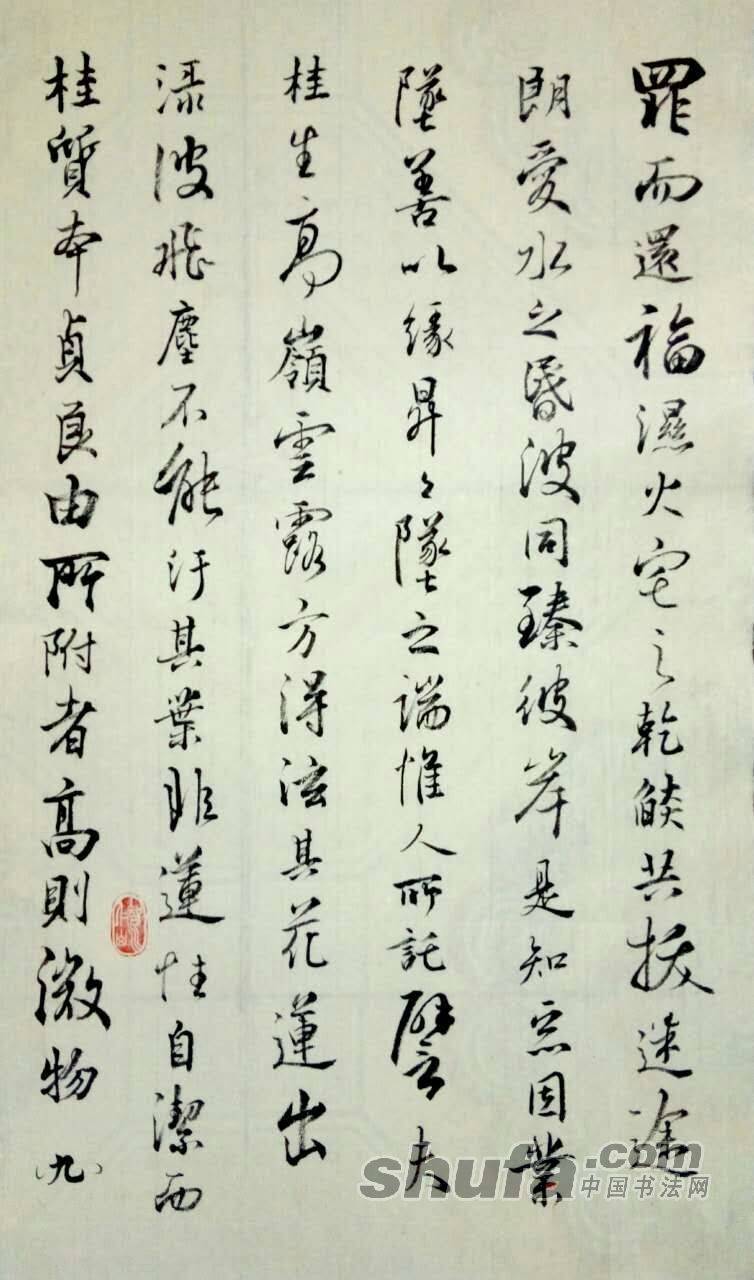 罪而還福濕火宅之乾𦦨共拔迷途
朗愛水之昏波同臻彼岸是知惡因業
墜善以緣昇々墜之端惟人所託譬夫
桂生高嶺雲露方得泫其花蓮出
淥波飛塵不能汙其葉非蓮性自潔而
桂質本貞良由所附者高則微物
(九)
shufa.com
中国书法网